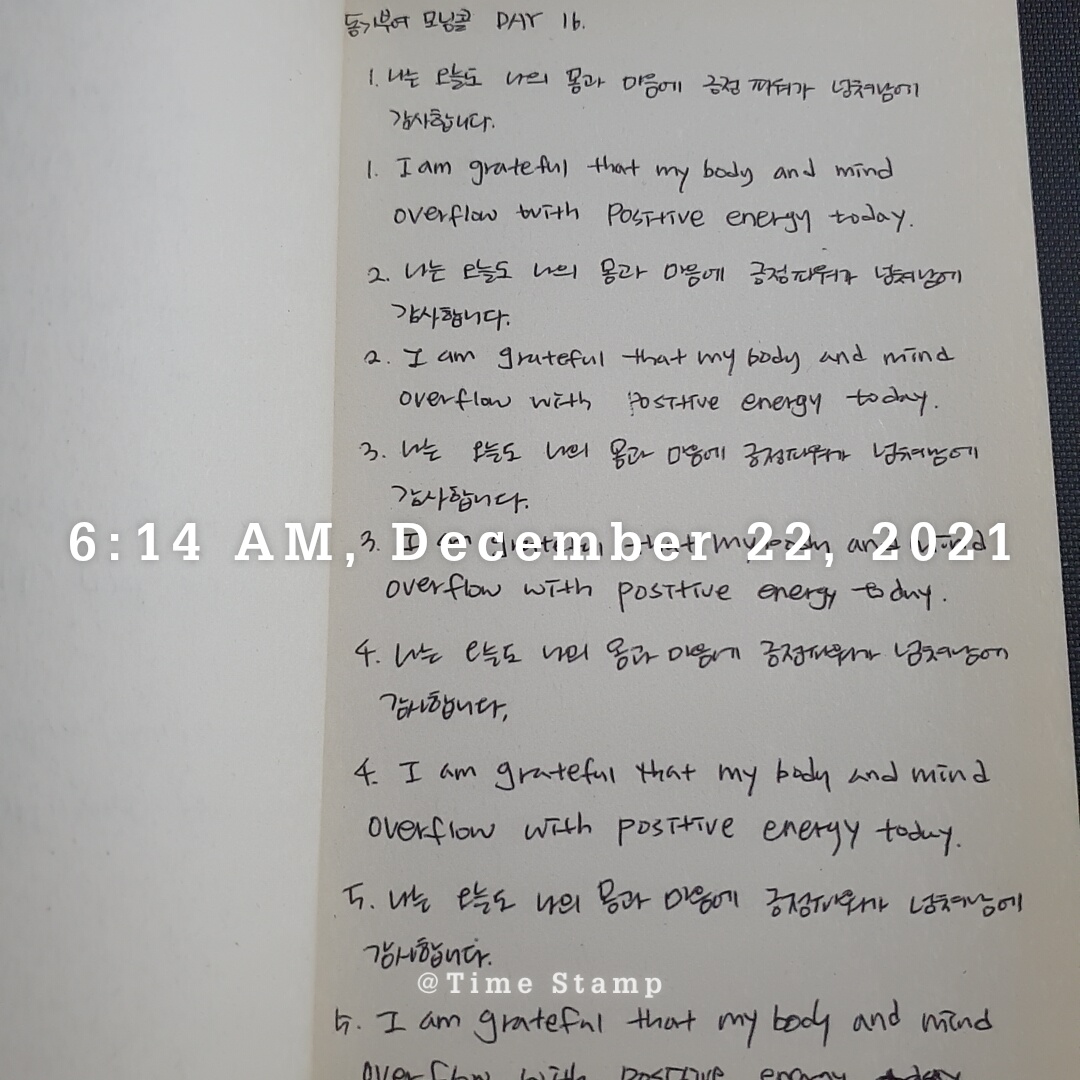 동기부여 모닝콜 DAY 16.
1. 나는 오늘도 나의 몸과 마음에 긍정 파워가 넘쳐남에
감사합니다.
1. I am grateful that my body and mind
overflow with positive energy today.
2. 나는 오늘도 나의 몸과 마음에 긍정파워가 넘쳐남에
감사합니다.
2. I am grateful that my body and mind
overflow with positive energy today.
3. 나는 오늘도 나의 몸과 마음에 긍정파워가 넘쳐남에
감사합니다.
3. I am grateful that my body and mind
6:14 AM, December 22, 2021
overflow with positive energy today.
4. 나는 오늘도 나의 몸과 마음에 긍정파워가 넘쳐남에
감사합니다.
4. I am grateful that my body and mind
overflow with positive energy today.
5. 나는 오늘도 나의 몸과 마음에 긍정파워가 넘쳐남에
감사합니다.
@Time Stamp
5. I am grateful that my body and mind
overflow with positive energy today